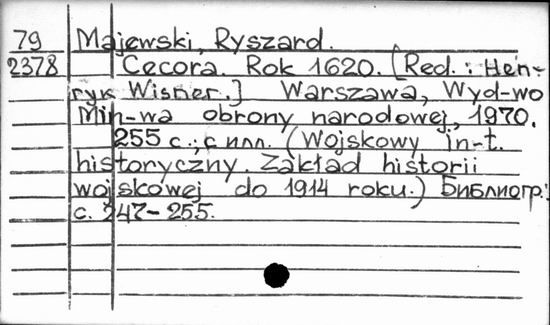 79 Majewski, Ryszard.
2378 Cecora. Rok 1620. [Red.: Hen-
ryk Wisner.] Warszawa, Wyd-wo
Min-wa obrony narodowej, 1970.
255 с.; с илл. (Wojskowy in-t.
historyczny. Zakład historii
wojskowej do 1914 roku.) Библиогр.:
с. 247-255.